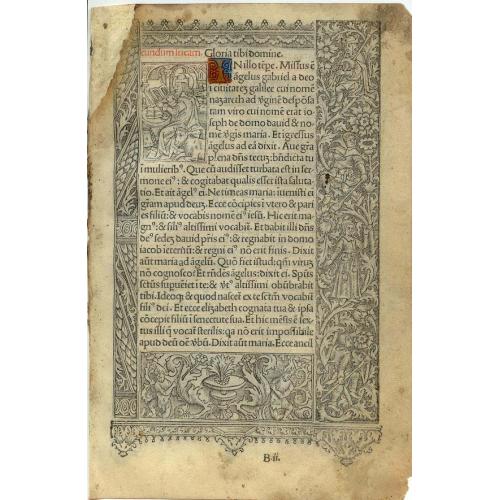 cundum lucam. Gloria tibi domine.
IN illo tẽpe. Missus ẽ
ãgelus gabriel a deo
i ciuitatẽ galilee cui nomẽ
nazareth ad v̓ginẽ despõsa
tam viro cui nomẽ erat io
seph de domo dauid & no
mẽ v̓gis maria. Et igressus
ãgelus ad eã dixit. Aue gra
plena dñs tecũ: bñdicta tu
i mulierib⁹. Que cũ audisset turbata est in ser
mone ei⁹: & cogitabat qualis esset ista saluta
tio. Et ait ãgel⁹ ei. Ne timeas maria: iuenisti ei
grãm apud deũ. Ecce cõcipies i vtero & pari
es filiũ: & vocabis nomẽ ei⁹ iesũ. Hic erit ma
gn⁹: & fili⁹ altissimi vocabit̃. Et dabit illi dñs
de⁹ sedẽ dauid pris̃ ei⁹: & regnabit in domo
iacob i eternũ: & regni ei⁹ nõ erit finis. Dixit
aũt maria ad ãgelũ. Quõ fiet istud: qm̃ virũ
nõ cognosco? Et rñdẽs ãgelus: dixit ei. Spũs
sctũs supueĩet i te: & v̓t⁹ altissimi obũbrabit
tibi. Ideoq; & quod nascet̃ ex te sctm̃ vocabit̃
fili⁹ dei. Et ecce elizabeth cognata tua & ipsa
cõcepit filiũ i senectute sua. Et hic mẽsis ẽ sex
tus illi q̃ vocat̃ sterilis: qa nõ erit impossibile
apud deũ oẽ v̓bũ. Dixit aũt maria. Ecce ancil
B.ii.